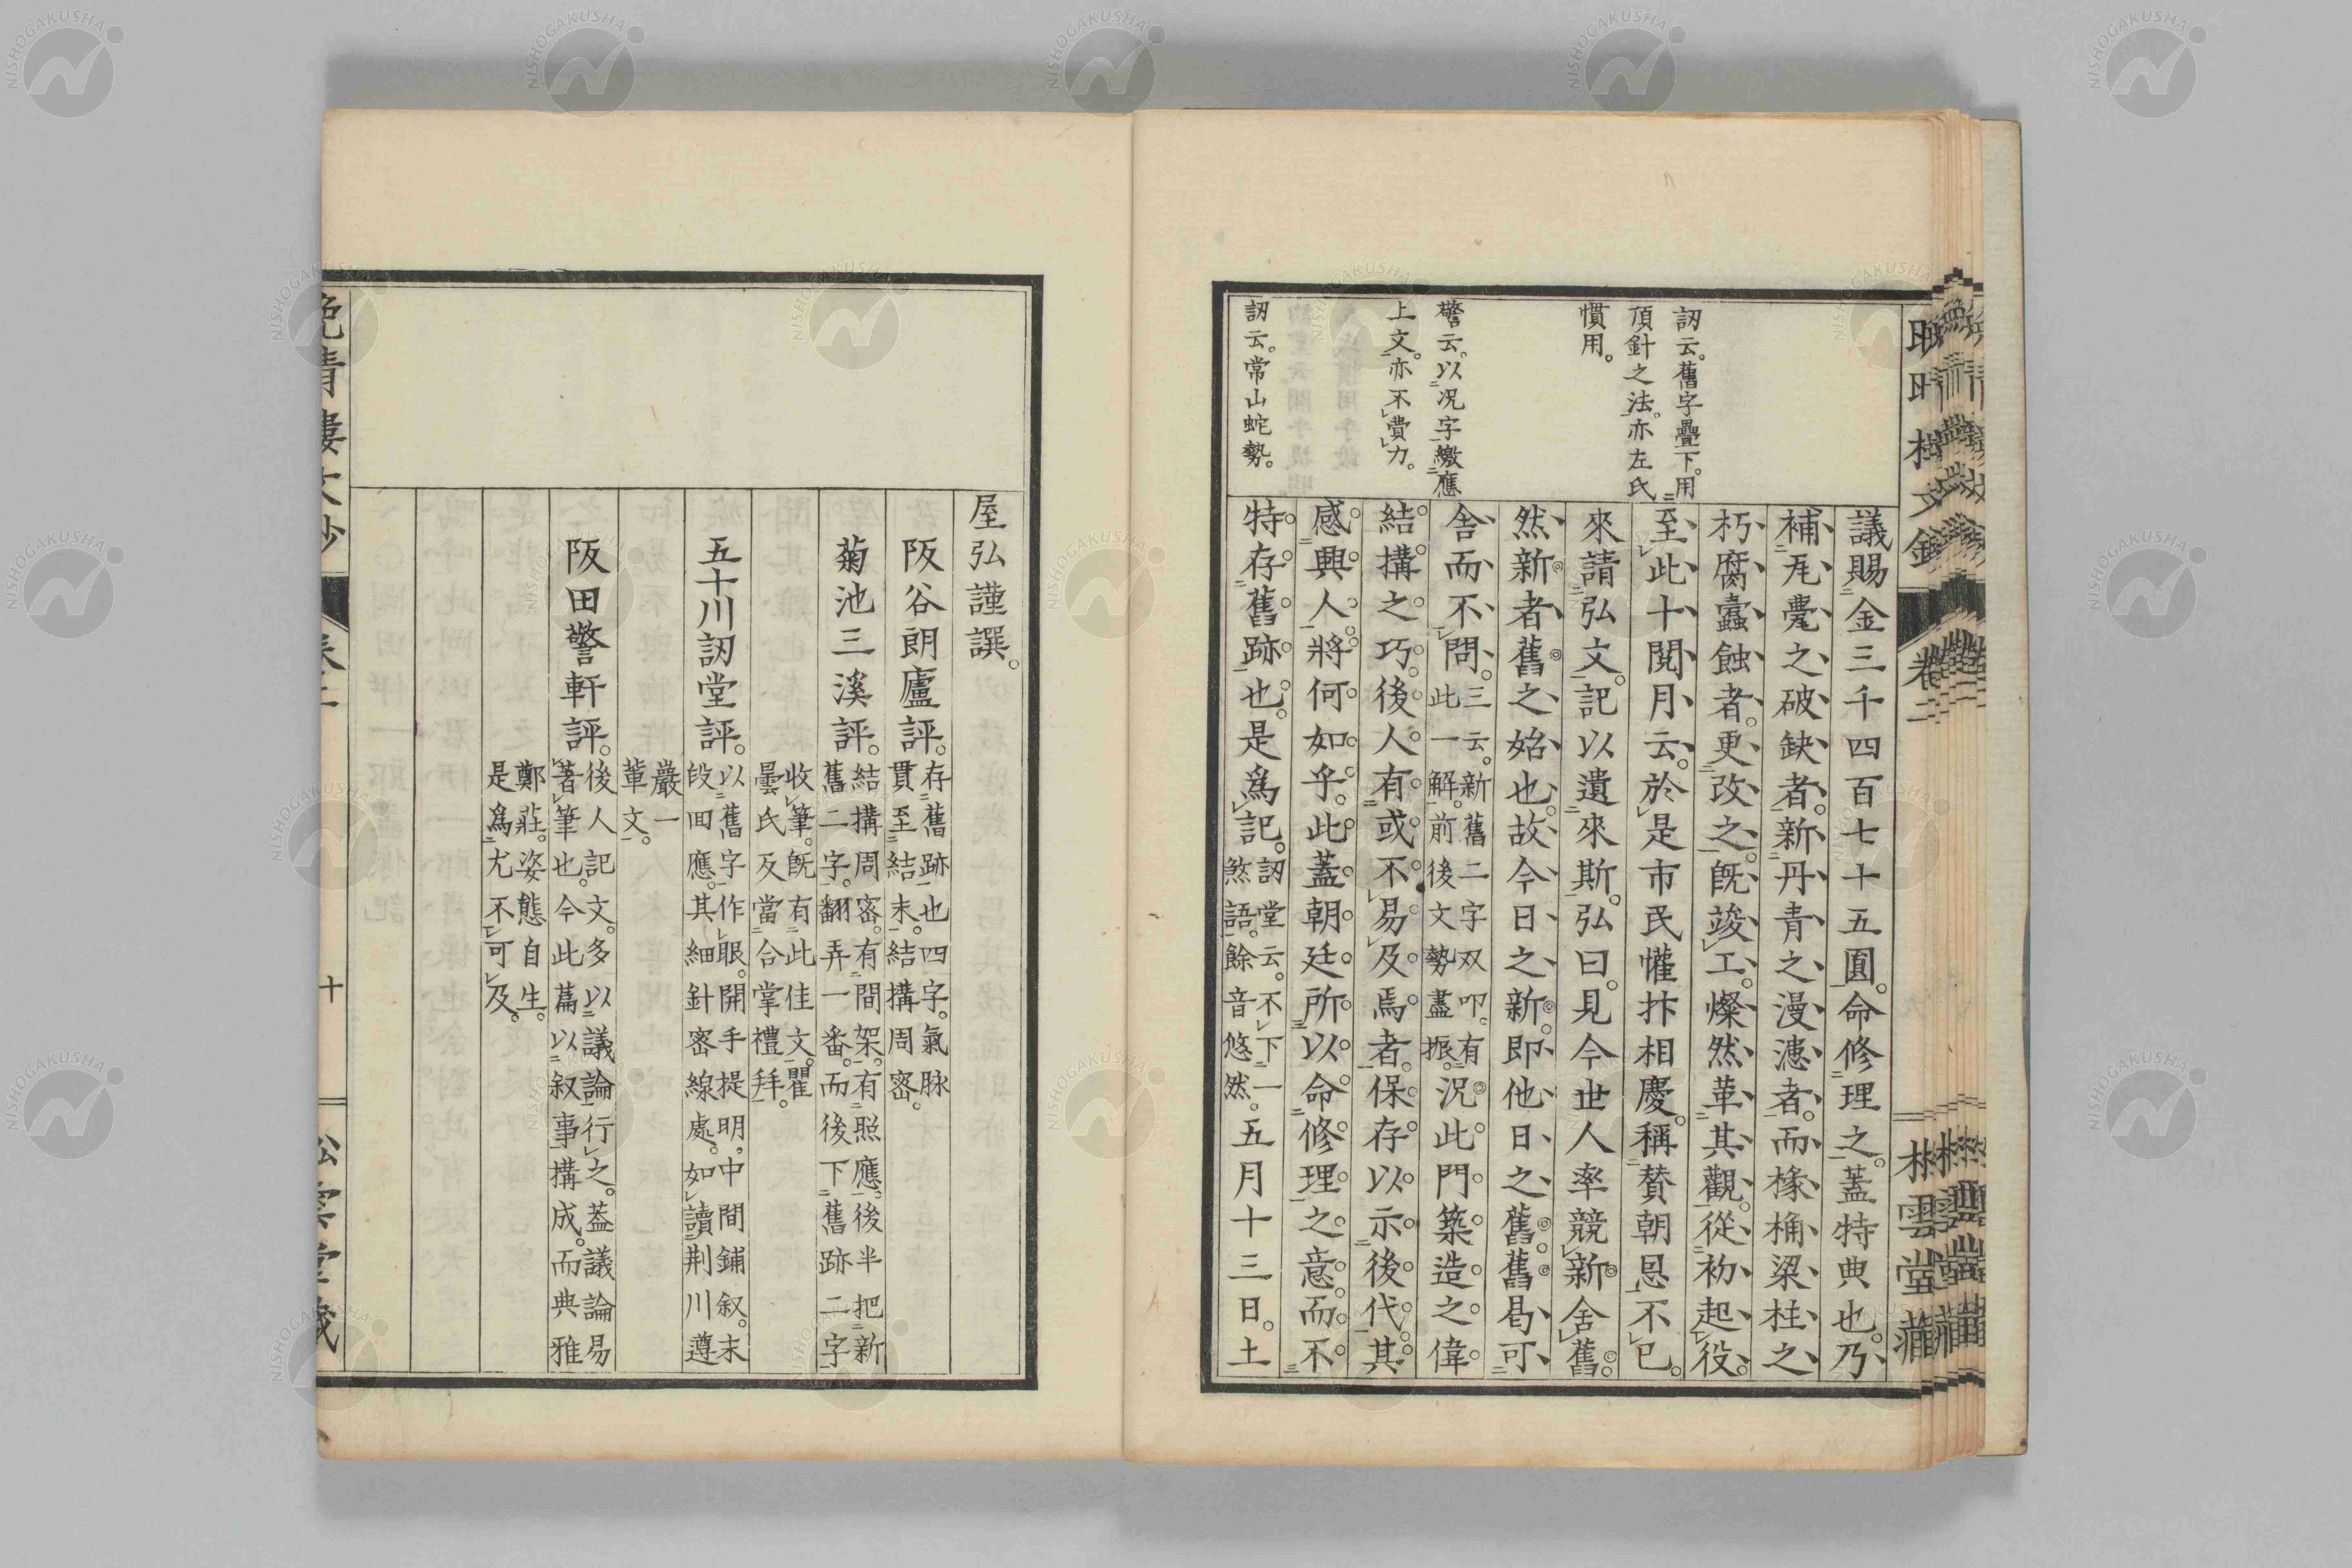 訒云。舊字疊下。用
頂針之法。亦左氏
慣用。
警云。以況字繳應
上文。亦不費力。
訒云。常山蛇勢。
議賜金三千四百七十五圓。命修理之。蓋特典也。乃
補瓦甍之破缺者。新丹青之漫漶者。而椽桷梁柱之
朽腐蠧蝕者。更改之。旣竣工。燦然革其觀。從初起役。
至此十閱月云。於是市民懽抃相慶。稱賛朝恩不已。
來請弘文。記以遺來斯。弘曰。見今世人率競新舍舊。
然新者舊之始也。故今日之新。即他日之舊。舊曷可
舍而不問。
三云。新舊二字双叩。有
此一解。前後文勢盡振。
況此門築造之偉。
結搆之巧。後人有或不易及焉者。保存以示後代。其
感興人。將何如乎。此蓋朝廷所以命修理之意。而不
特存舊跡也。是爲記。
訒堂云。不下一
煞語。餘音悠然。
五月十三日。土
卷二
松雲堂藏
屋弘謹譔。
阪谷朗廬評。
存舊跡也四字。氣脉
貫至結末。結搆周密。
菊池三溪評。
結搆周密。有間架。有照應。後半把新
舊二字。翻弄一番。而後下舊跡二字
收筆。旣有此佳文。瞿
曇氏及當合掌禮拜。
五十川訒堂評。
以舊字作眼。開手提明。中間鋪叙。末
段回應。其細針密線處。如讀荆川遵
嚴一
輩文。
阪田警軒評。
後人記文。多以議論行之。蓋議論易
著筆也。今此篇以叙事搆成。而典雅
鄭莊。姿態自生。
是爲尤不可及。
晚晴樓文鈔
卷二
十
松雲堂藏
NISHOGAKUSHA